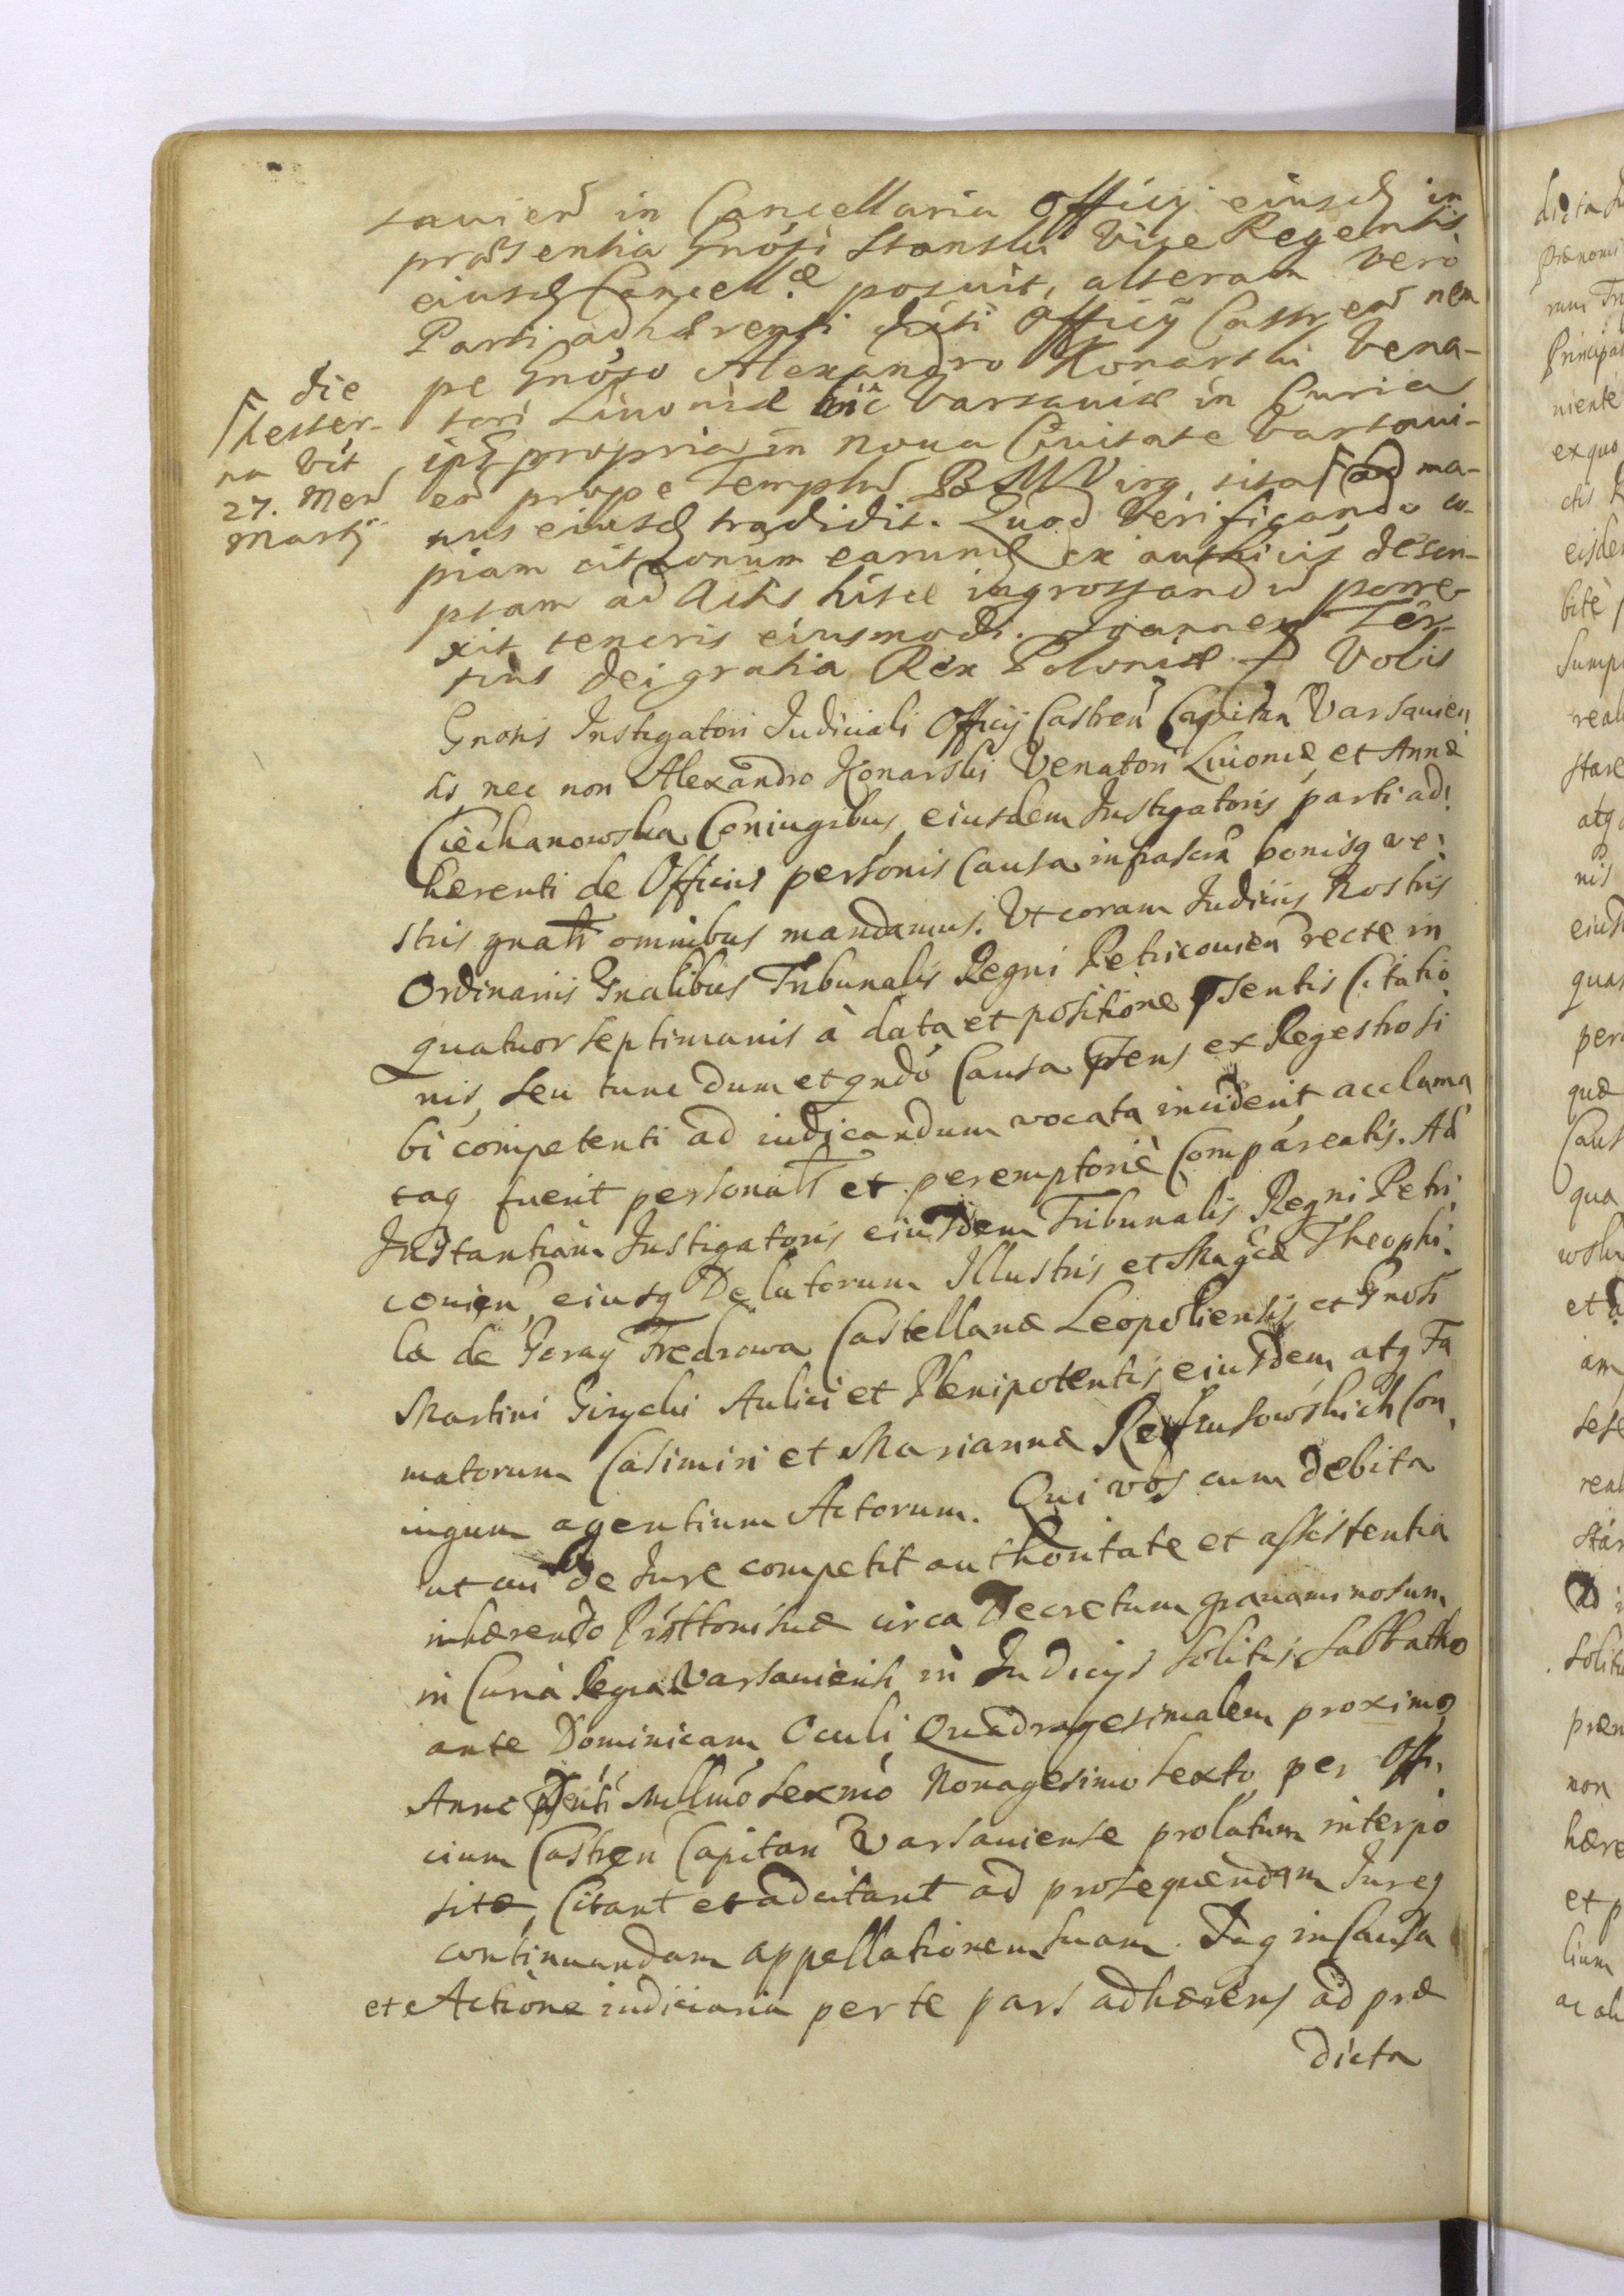 sauien in Cancellaria Officij eiusd in
præsentia Gnosi Stonski Vice Regentis
eiusd Cancellæ posuit, alteram verò
Parti adhærenti dicti Officij Castren nem
pe Gnoso Alexandro Konarski Vena-
tori Liuoniæ hic Varsauiæ in Curia
ips propria in noua Ciuitate Varsaui-
en prope Templu B M Virg. sita ad ma-
nus eiusd tradidit. Quod verificando co-
piam citaonum earund ex authicis descri-
ptam ad Acta hisce ingrossandu porre-
xit tenoris eiusmodi. Joannes Ter-
tius Dei gratia Rex Poloniæ Vobis
Gnosis Instigatori Judiciali Officij Castren Capitan Varsauien
is nec non Alexandro Konarski Venatori Liuoniæ et Annæ
Ciechanowska Coniugibus eiusdem Instigatoris parti ad
hærenti de Officius personis Causa infrascra bonisq ve
stris gnalr omnibus mandamus. Vt coram Judicijs Nostris
Ordinarijs Gnalibus Tribunalis Regni Petricouien recte in
quatuor septimanis à data et positione psentis Citatio
nis, seu tunc dum et qndo Causa psens ex Regestro si
bi competenti ad iudicandum vocata inciderit acclama
taq fuerit personalr et peremptoriè Compareatis. Ad
Instantiam Instigatoris eiusdem Tribunalis Regni Petri
couien eiusq Delatorum Illustris et Magcæ Theophi
la de Goray Fredrowa Castellanæ Leopoliensis et Gnosi
Martini Girycki Aulici et Plenipotentis eiusdem atq Fa
matorum Casimiri et Mariannæ Con
iugum agentium Actorum. Qui vos cum debita
ut cui de Jure competit authoritate et assistentia
inhærendo Prottoni suæ circa Decretum grauaminosum
in Curia Regia Varsauiensi in Judicijs solitis Sabbatho
ante Dominicam Oculi Quadragesimalem proximo
Anno psenti Millmo sexmo Nonagesimo sexto per Offi
cium Castren Capitan Varsauiense prolatum interpo
sitæ, Citant et adcitant ad prosequendam Jureq
continuandam appellationem suam. in Causa
et Actione iudiciaria per te pars adhærens ad præ
dicta
die
hester-
na vit
27. Men
Martij